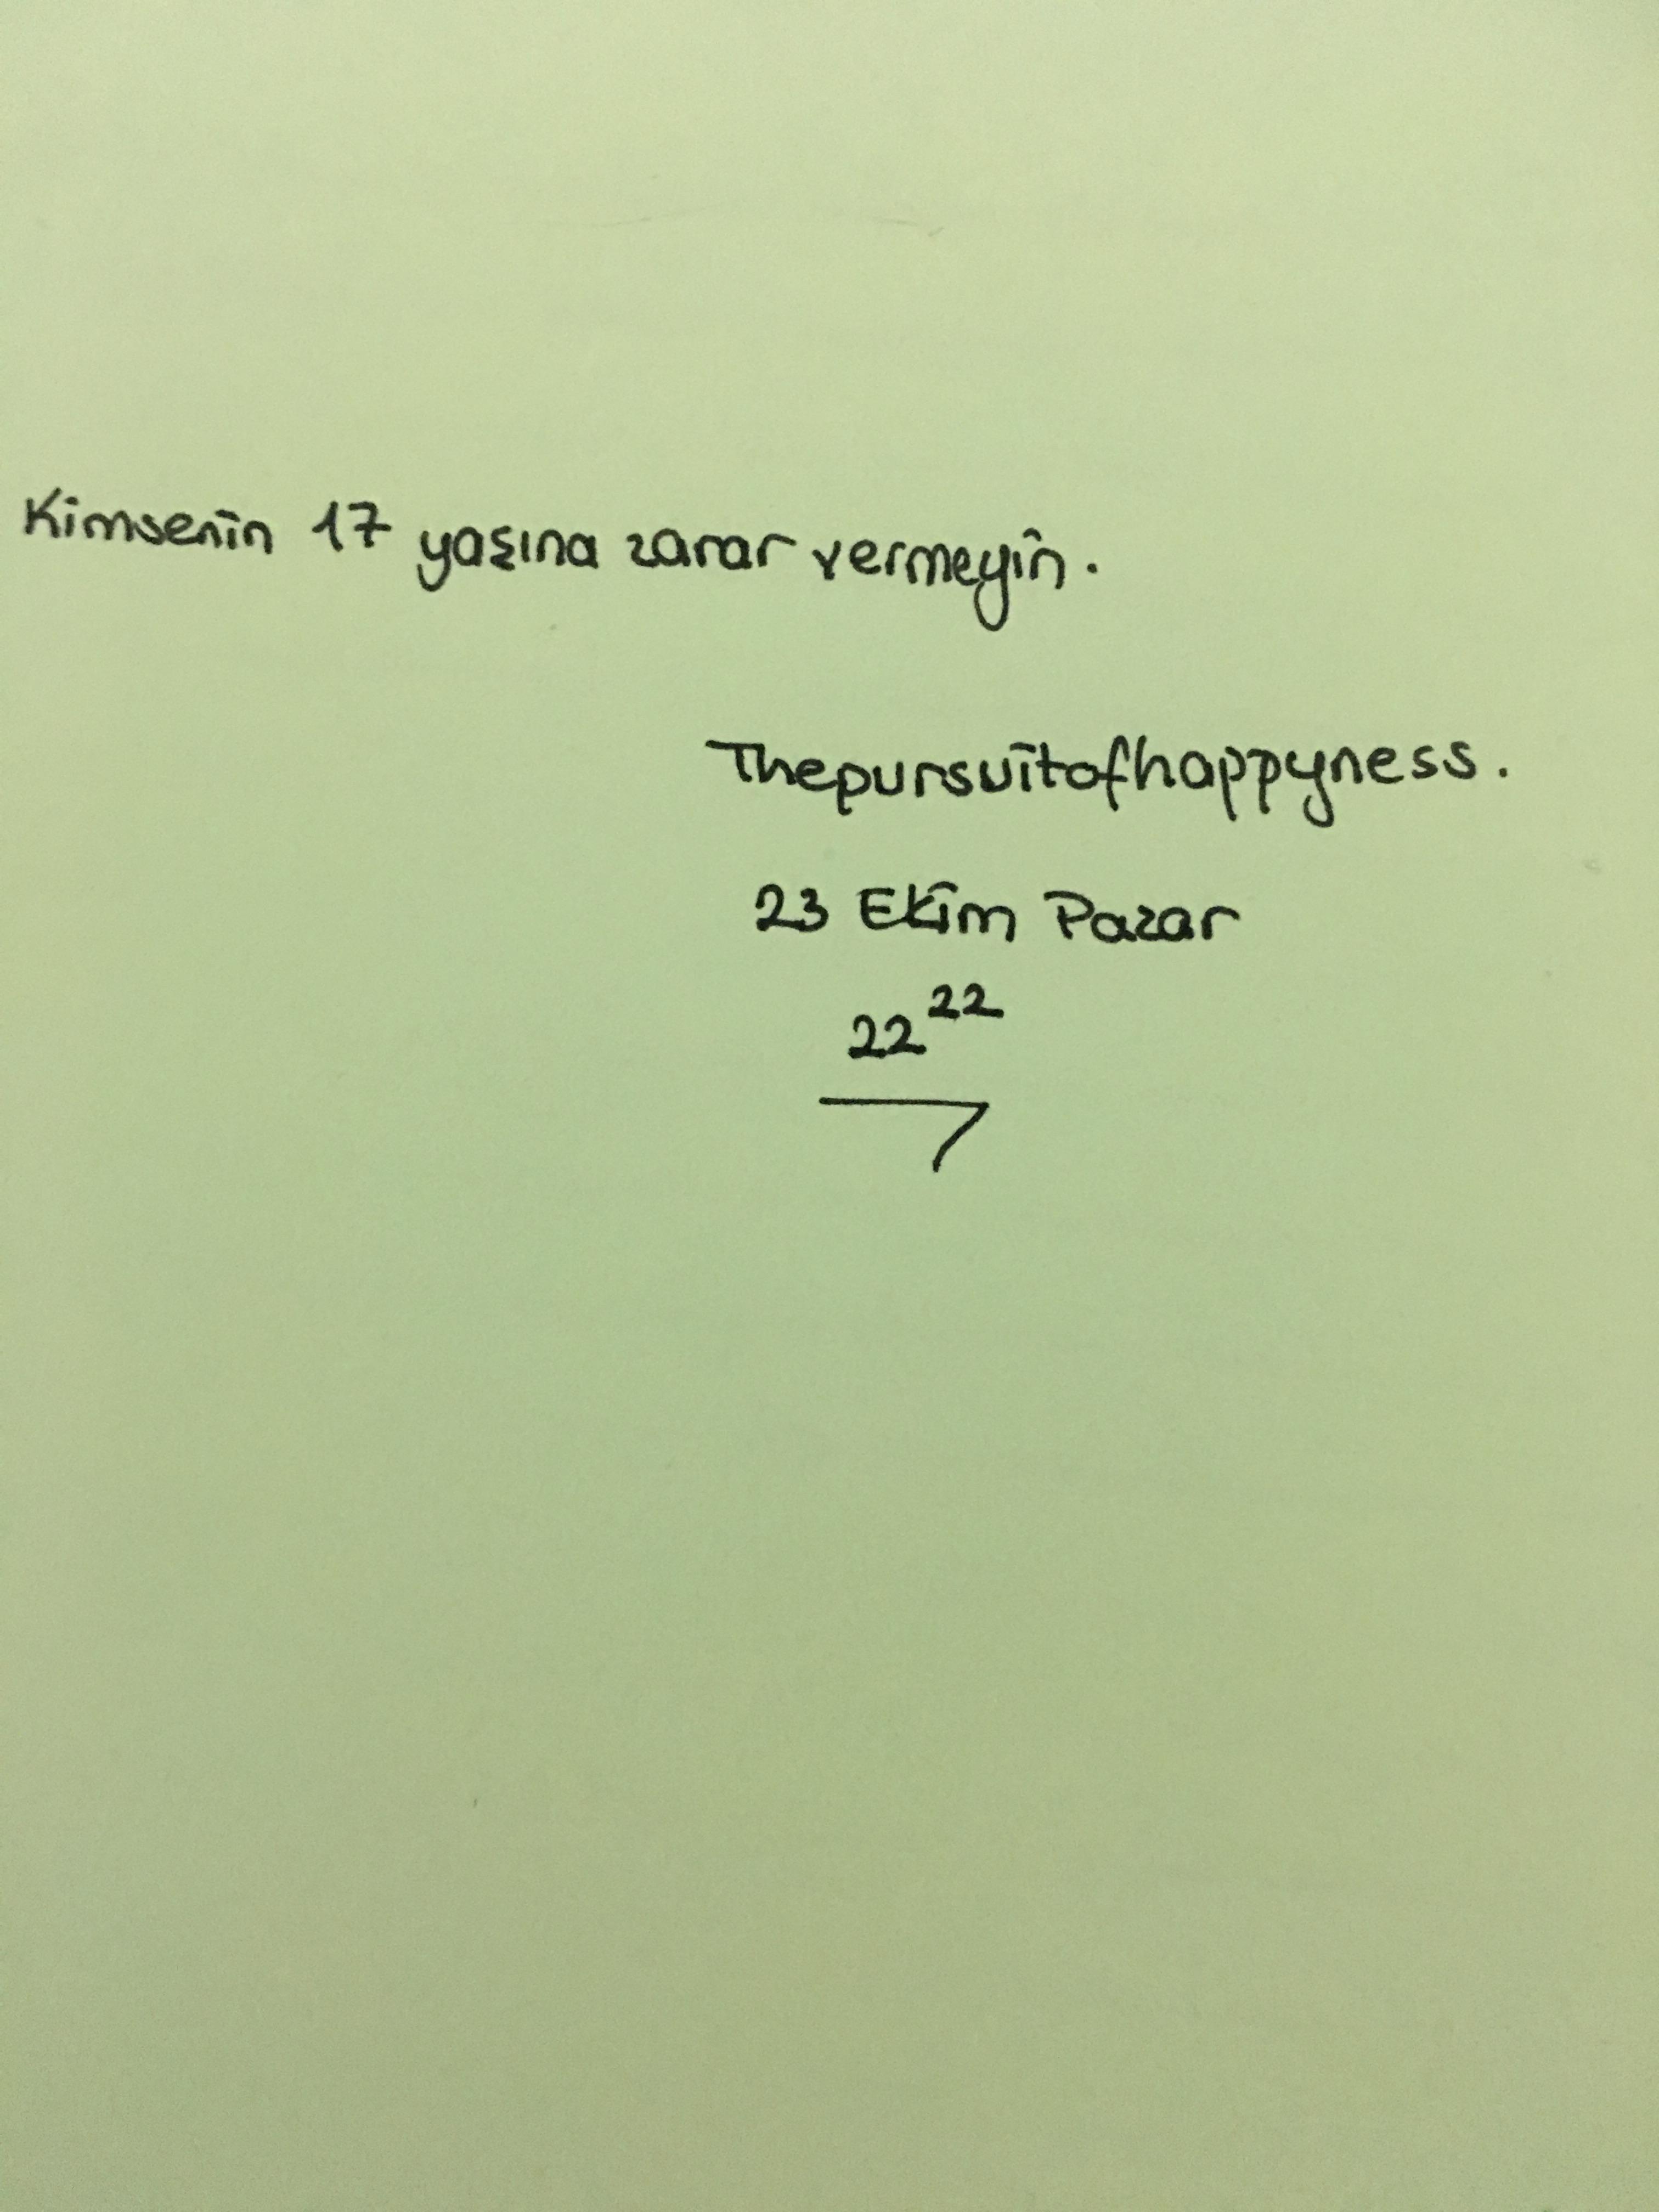 Kimsenin 17 yaşına zarar vermeyin.
Thepursuitofhappyness.
23 Ekim Pazar
22²²